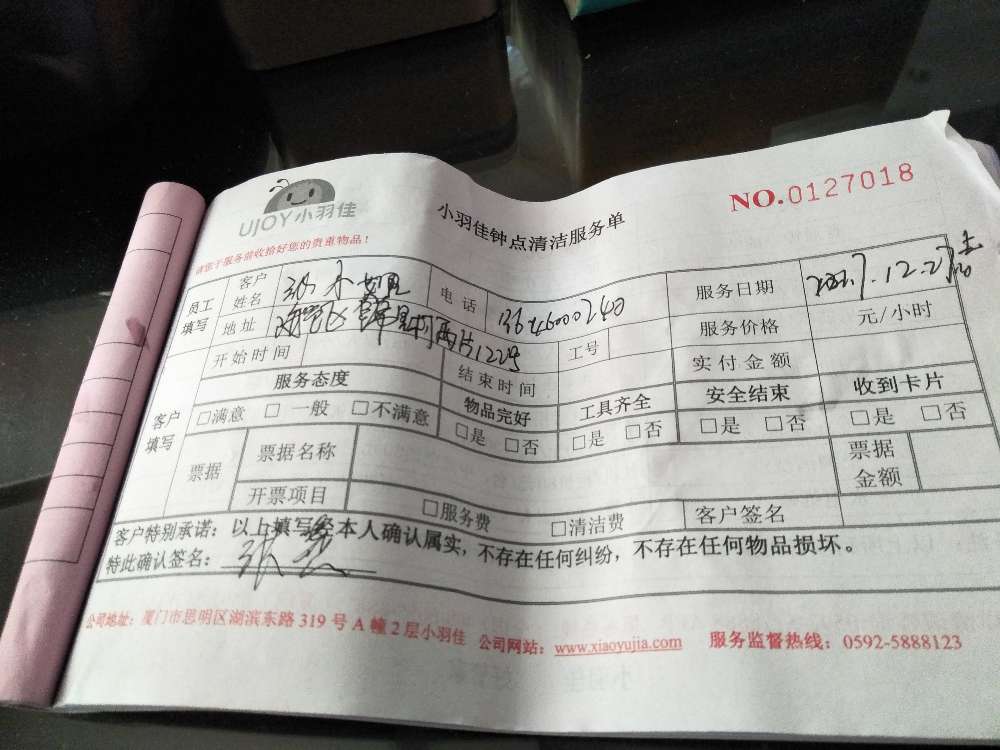 UJOY小羽佳
小羽佳钟点清洁服务单
NO.0127018
请您于服务前收拾好您的贵重物品！
员工填写 客户姓名 张 电话 服务日期
地址 服务价格 元/小时
开始时间 结束时间 工号 实付金额
客户填写 服务态度 物品完好 工具齐全 安全结束 收到卡片
□满意 □一般 □不满意 □是 □否 □是 □否 □是 □否 □是 □否
票据 票据名称 票据金额
开票项目 □服务费 □清洁费 客户签名
客户特别承诺：以上填写经本人确认属实，不存在任何纠纷，不存在任何物品损坏。
特此确认签名：张
公司地址：厦门市思明区湖滨东路 319 号 A 幢 2 层小羽佳 公司网站：www.xiaoyujia.com 服务监督热线：0592-5888123